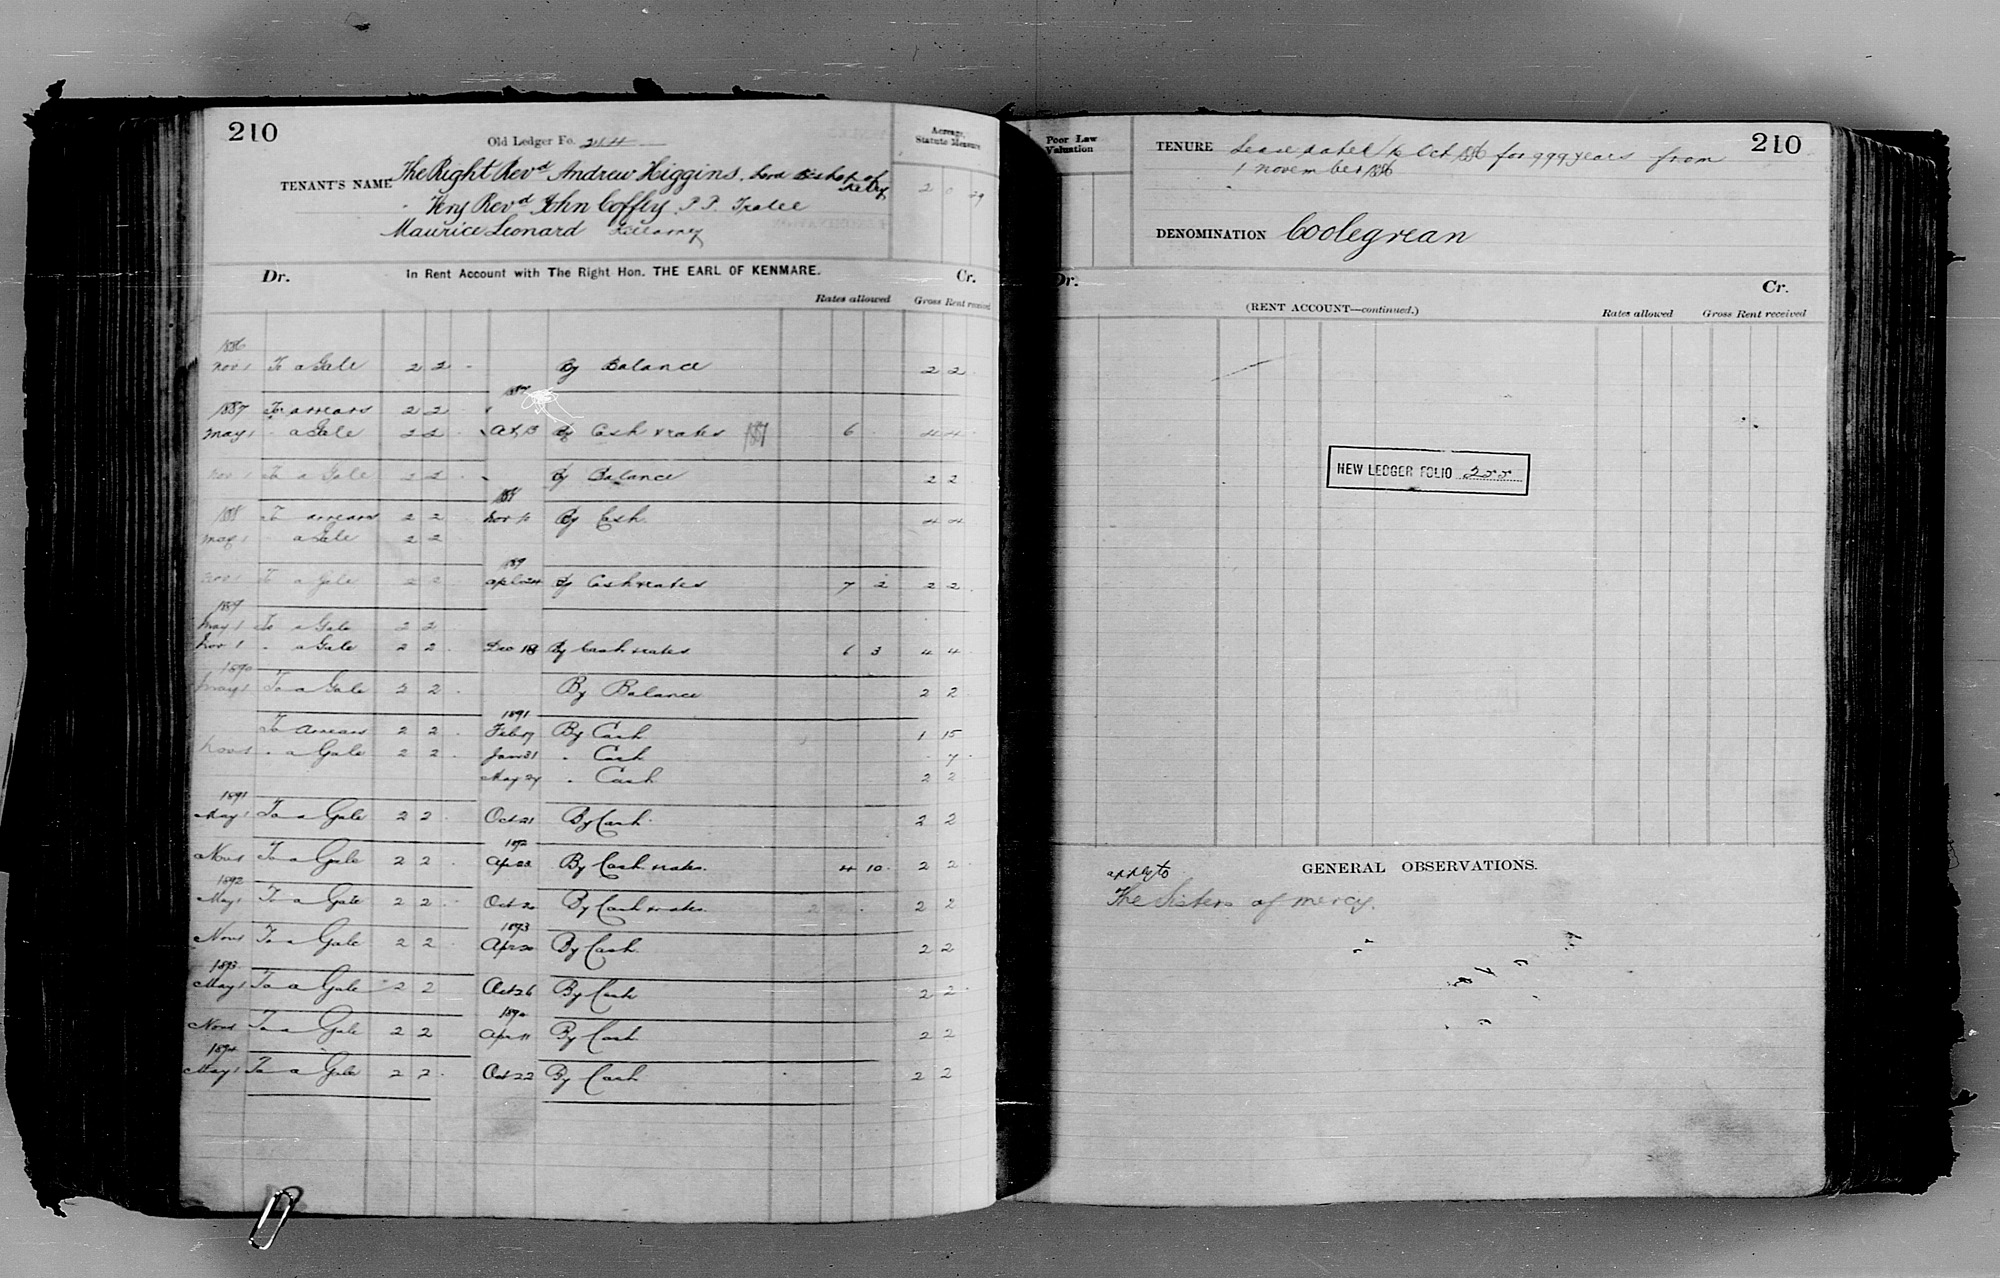 210
Old Ledger Fo. 214
Acreage,
Statute Measure
TENANT'S NAME The Right Revd Andrew Higgins, Lord Bishop of
Kerry
Very Revd John Coffey, P.P. Tralee
Maurice Leonard Killarney
2 0 29
Dr. In Rent Account with The Right Hon. THE EARL OF KENMARE. Cr.
Rates allowed Gross Rent received
1886
Nov 1 To a Gale 2 2 - By Balance 2 2
1887
1887 To arrears 2 2
May 1 " a Gale 2 2 Oct 13 By Cash & rates 1887 6 4 4
Nov 1 To a Gale 2 2 By Balance 2 2
1888
1888 To arrears 2 2 Nov By Cash 4 4
May 1 a Gale 2 2
1889
Nov 1 To a Gale 2 2 Apl 24 By Cash & rates 7 2 2 2
1889
May 1 To a Gale 2 2
Nov 1 " a Gale 2 2 Dec 18 By Cash & rates 6 3 4 4
1890
May 1 To a Gale 2 2 By Balance 2 2
1891
To arrears 2 2 Feb 17 By Cash 1 15
Nov 1 " a Gale 2 2 Jan 31 " Cash 7
May 27 " Cash 2 2
1891
May 1 To a Gale 2 2 Oct 21 By Cash 2 2
1892
Nov 1 To a Gale 2 2 Apr 23 By Cash & rates. 4 10 2 2
1892
May 1 To a Gale 2 2 Oct 20 By Cash & rates. 2 2
1893
Nov 1 To a Gale 2 2 Apr 20 By Cash 2 2
1893
May 1 To a Gale 2 2 Oct 26 By Cash 2 2
1894
Nov 1 To a Gale 2 2 Apr 11 By Cash 2 2
1894
May 1 To a Gale 2 2 Oct 22 By Cash 2 2
Poor Law
Valuation
TENURE Lease dated Oct 1886 for 999 years from
1 November 1886
210
DENOMINATION Coolegrean
Dr. Cr.
(RENT ACCOUNT—continued.)
Rates allowed Gross Rent received
NEW LEDGER FOLIO 255
GENERAL OBSERVATIONS.
apply to
The Sisters of Mercy.